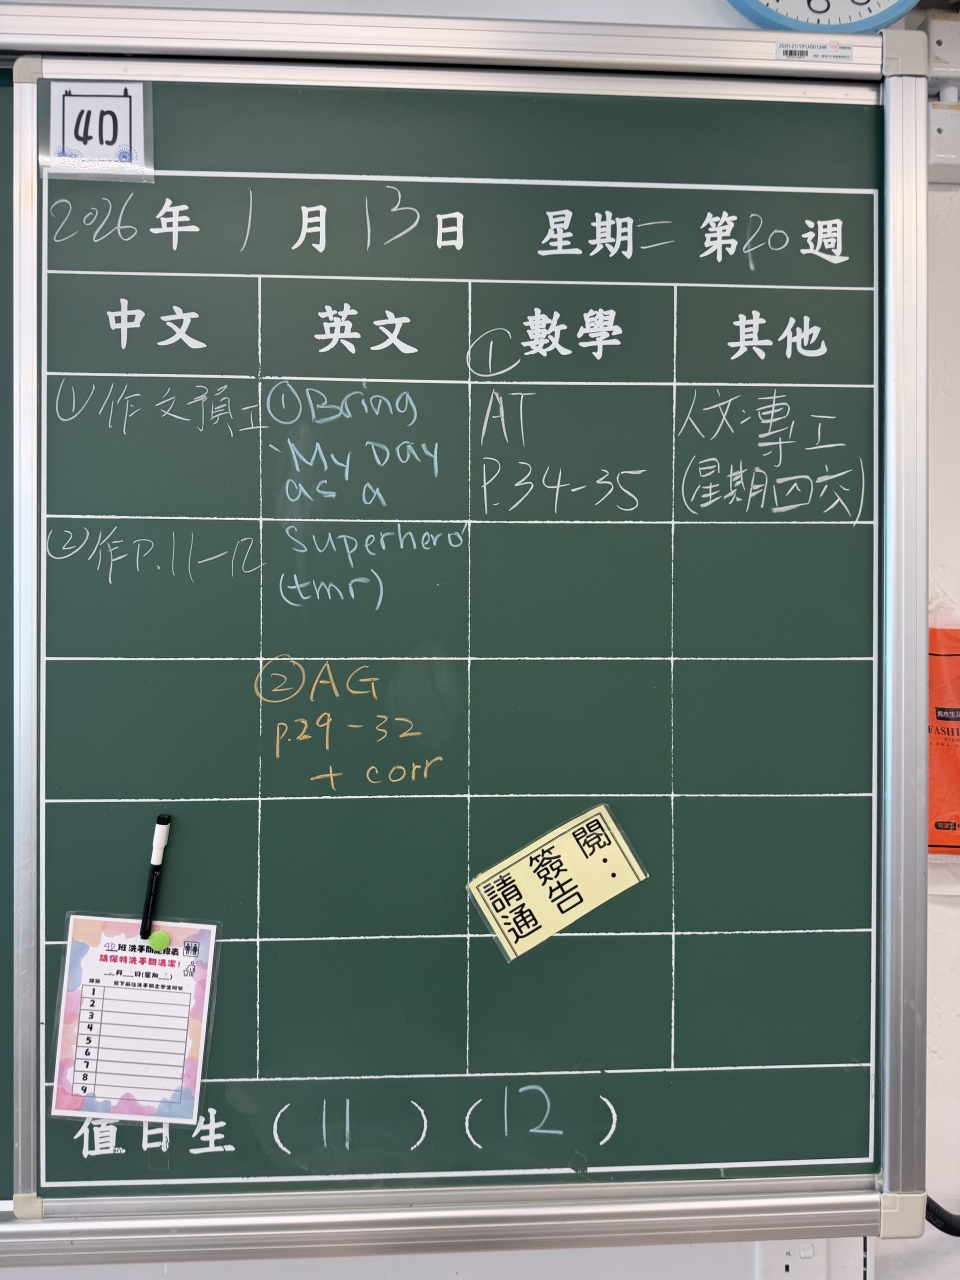 4D
2026年1月13日 星期二 第20週
中文 英文 數學 其他
①作文預工
②作P.11-12
①Bring
"My Day
as a
Superhero"
(tmr)
②AG
p.29-32
+ corr
①
AT
P.34-35
人文:專工
(星期四交)
請簽閱:
通告
4D班洗手間紀錄表
請保持洗手間清潔!
__月__日(星期__)
1
2
3
4
5
6
7
8
9
值日生 (11) (12)
FASHI